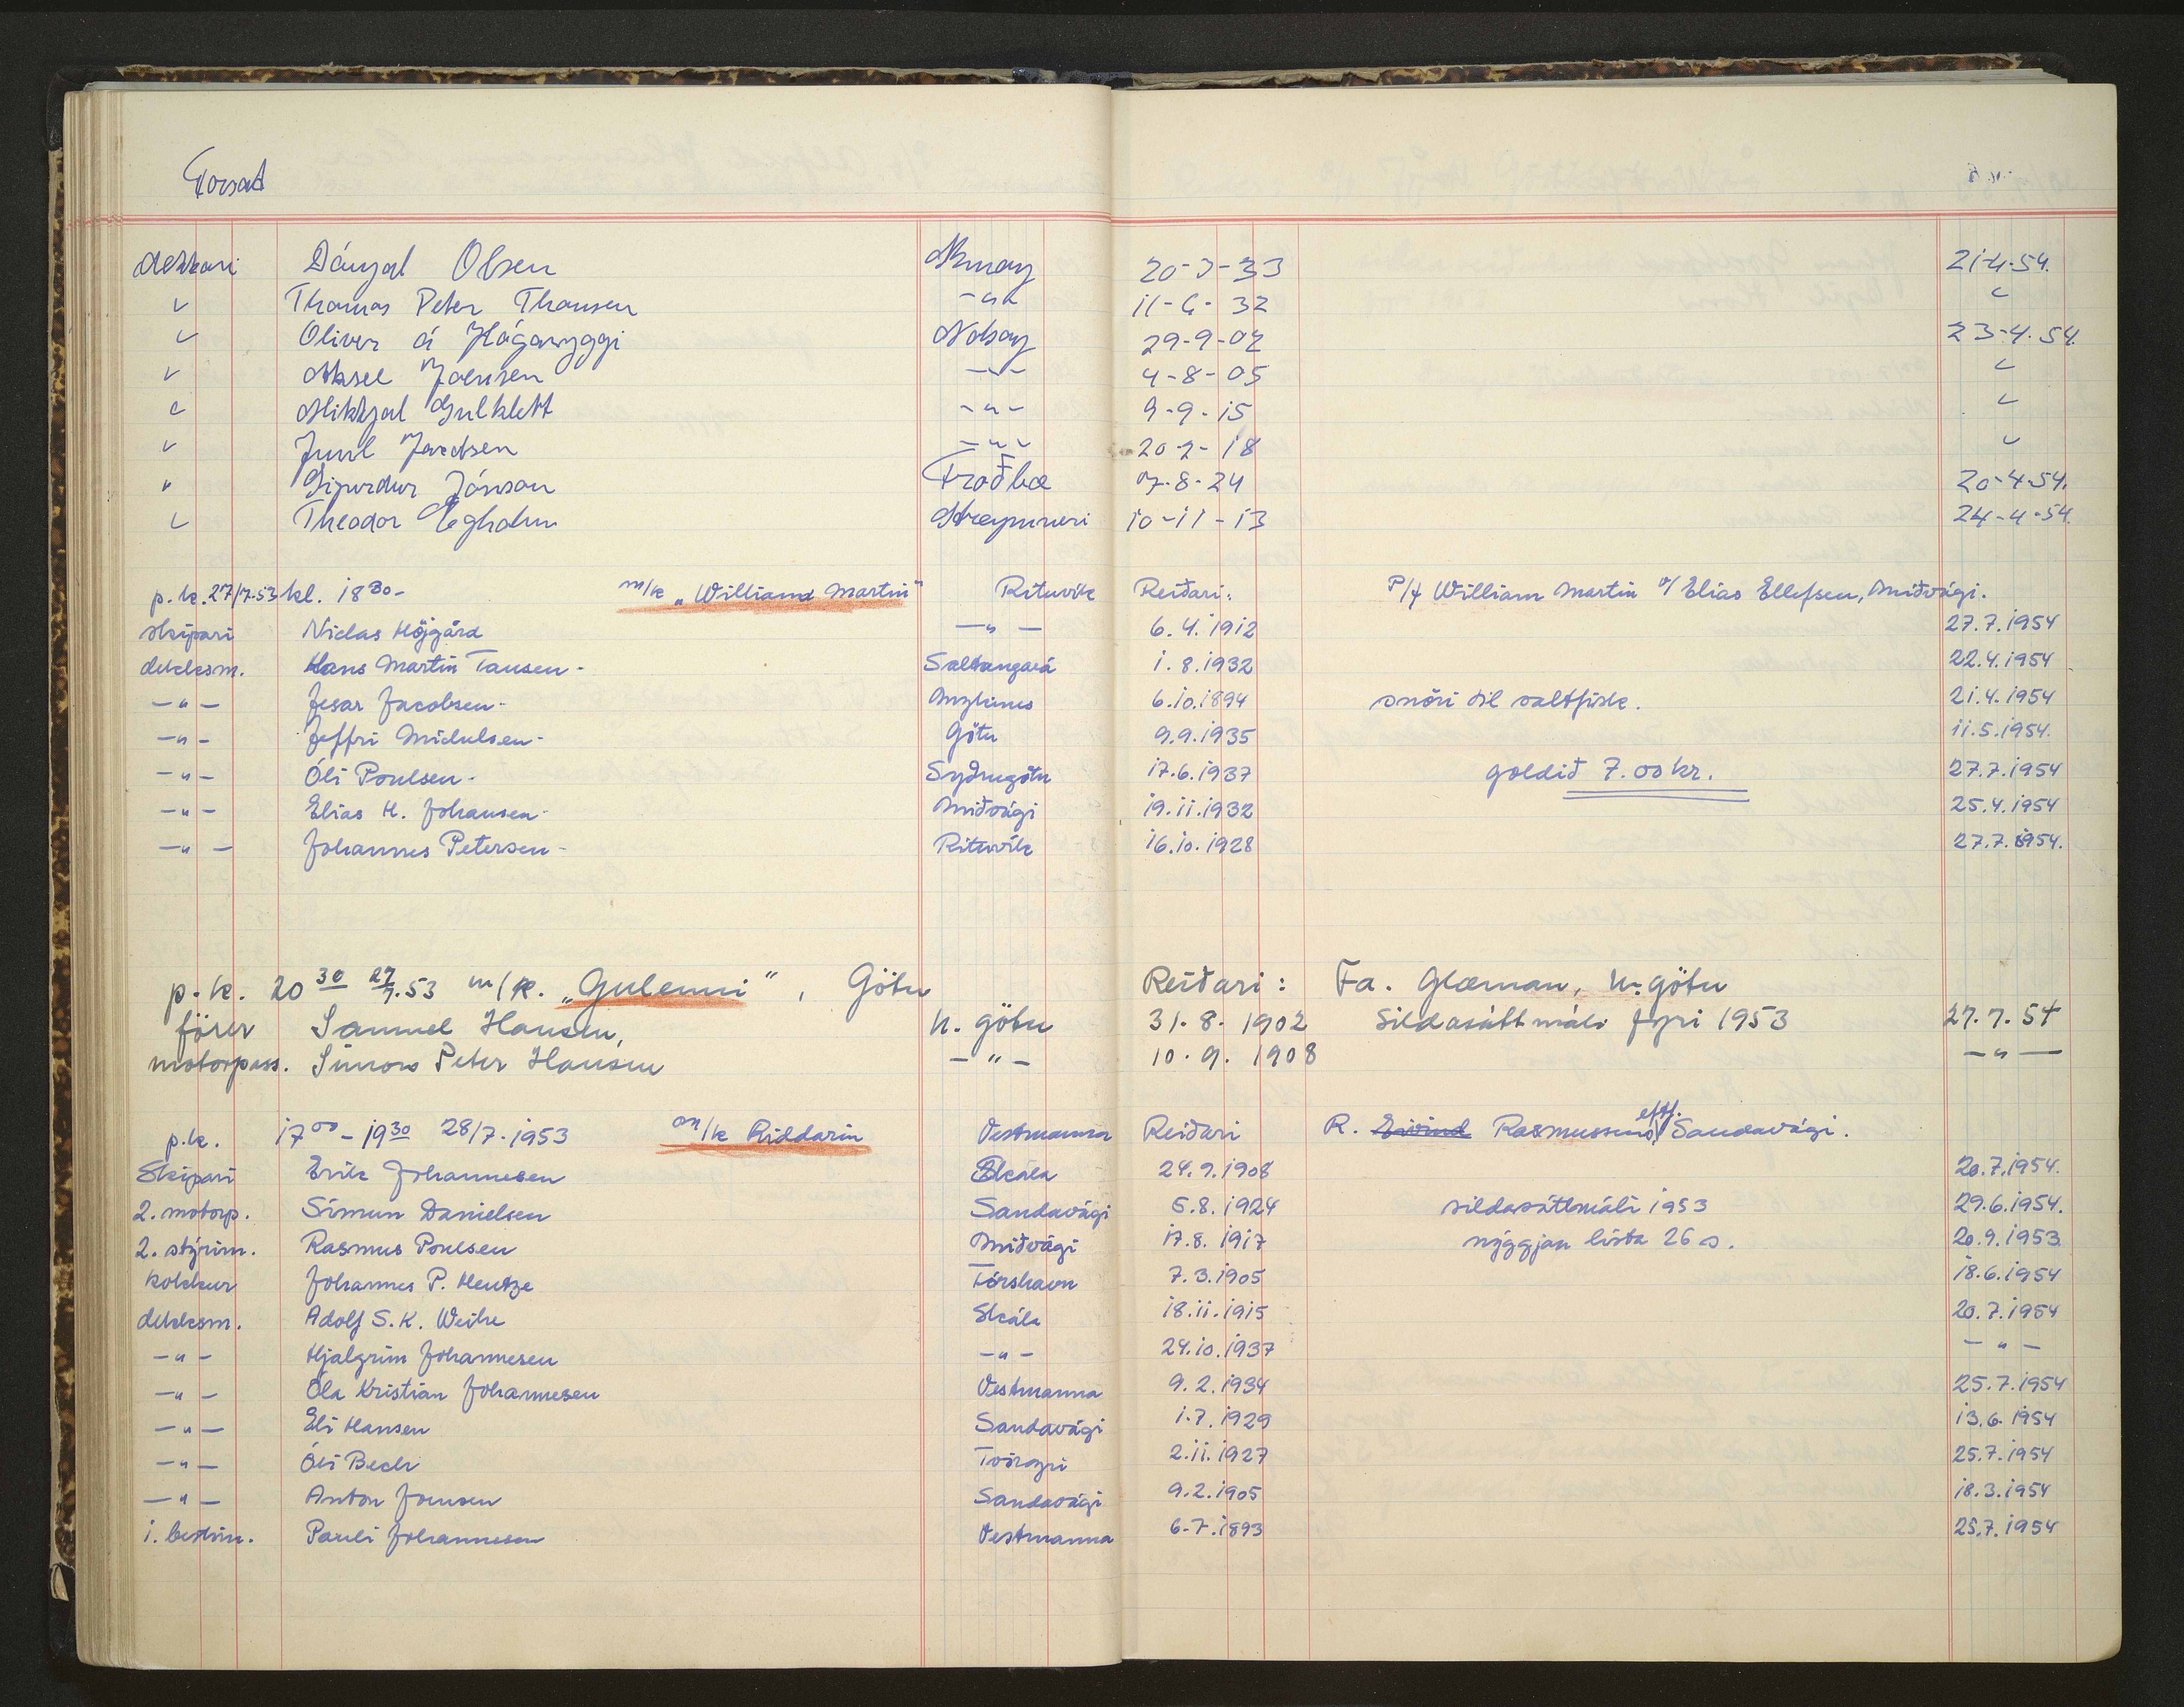 Forsat
dekkari Dánjal Olsen 20-3-33 21-4-54.
" Thomas Peter Thomsen -"- 11-6-32 "
" Oliver á Hágaryggi Nolsoy 29-9-02 23-4-54.
" Aksel Joensen -"- 4-8-05 "
" Mikkjal Gulklett -"- 9-9-15 "
" Juul Joensen -"- 20-2-18 "
" Sigurdur Jónsson Froðba 7-8-24 20-4-54.
" Theodor Egholm 10-11-13 24-4-54.
p.k. 27/7.53 kl. 18 30 - m/k „William Martin" Rituvík Reiðari: P/f William Martin v/ Elias Ellefsen, Miðvági.
skipari Niclas Höjgård -"- 6.4.1912 27.7.1954
dekksm. Hans Martin Tausen- Saltangará 1.8.1932 22.4.1954
-"- Jesar Jacobsen- 6.10.1894 snóri til saltfisk. 21.4.1954
-"- Jeffri Mickelsen- Götu 9.9.1935 11.5.1954.
-"- Óli Poulsen- Syðrugötu 17.6.1937 goldið 7.00 kr. 27.7.1954
-"- Elias H. Johansen- Miðvági 19.11.1932 25.4.1954
-"- Johannes Petersen- Rituvík 16.10.1928 27.7.1954.
p.k. 20 30 27/7.53 m/k. „Gulenni", Götu Reiðari: Fa. Glæman, N. götu
förer Samuel Hansen, N. götu 31.8.1902 Sildasáttmáli fyri 1953 27.7.54
motorpass. Simon Peter Hansen -"- 10.9.1908 -"-
p.k. 17 00 - 19 30 28/7.1953 m/k Riddarin Vestmanna Reiðari R. Eivind Rasmussens eftf. Sandavági.
Skipari Erik Johannesen Skála 24.9.1908 20.7.1954.
2. motorp. Simun Danielsen Sandavági 5.8.1924 sildasáttmáli 1953 29.6.1954.
2. stýrim. Rasmus Poulsen Miðvági 17.8.1917 nýggjan lista 26 s. 20.9.1953
kokkur Johannes P. Hentze Tórshavn 7.3.1905 18.6.1954
dekksm. Adolf S.K. Weihe Skála 18.11.1915 20.7.1954
-"- Hjalgrim Johannesen -"- 24.10.1937 -"-
-"- Óla Kristian Johannesen Vestmanna 9.2.1934 25.7.1954
-"- Eli Hansen Sandavági 1.7.1929 13.6.1954
-"- Óli Bech Tvöroyri 2.11.1927 25.7.1954
-"- Anton Joensen Sandavági 9.2.1905 18.3.1954
1. bestm. Pauli Johannesen Vestmanna 6.7.1893 25.7.1954